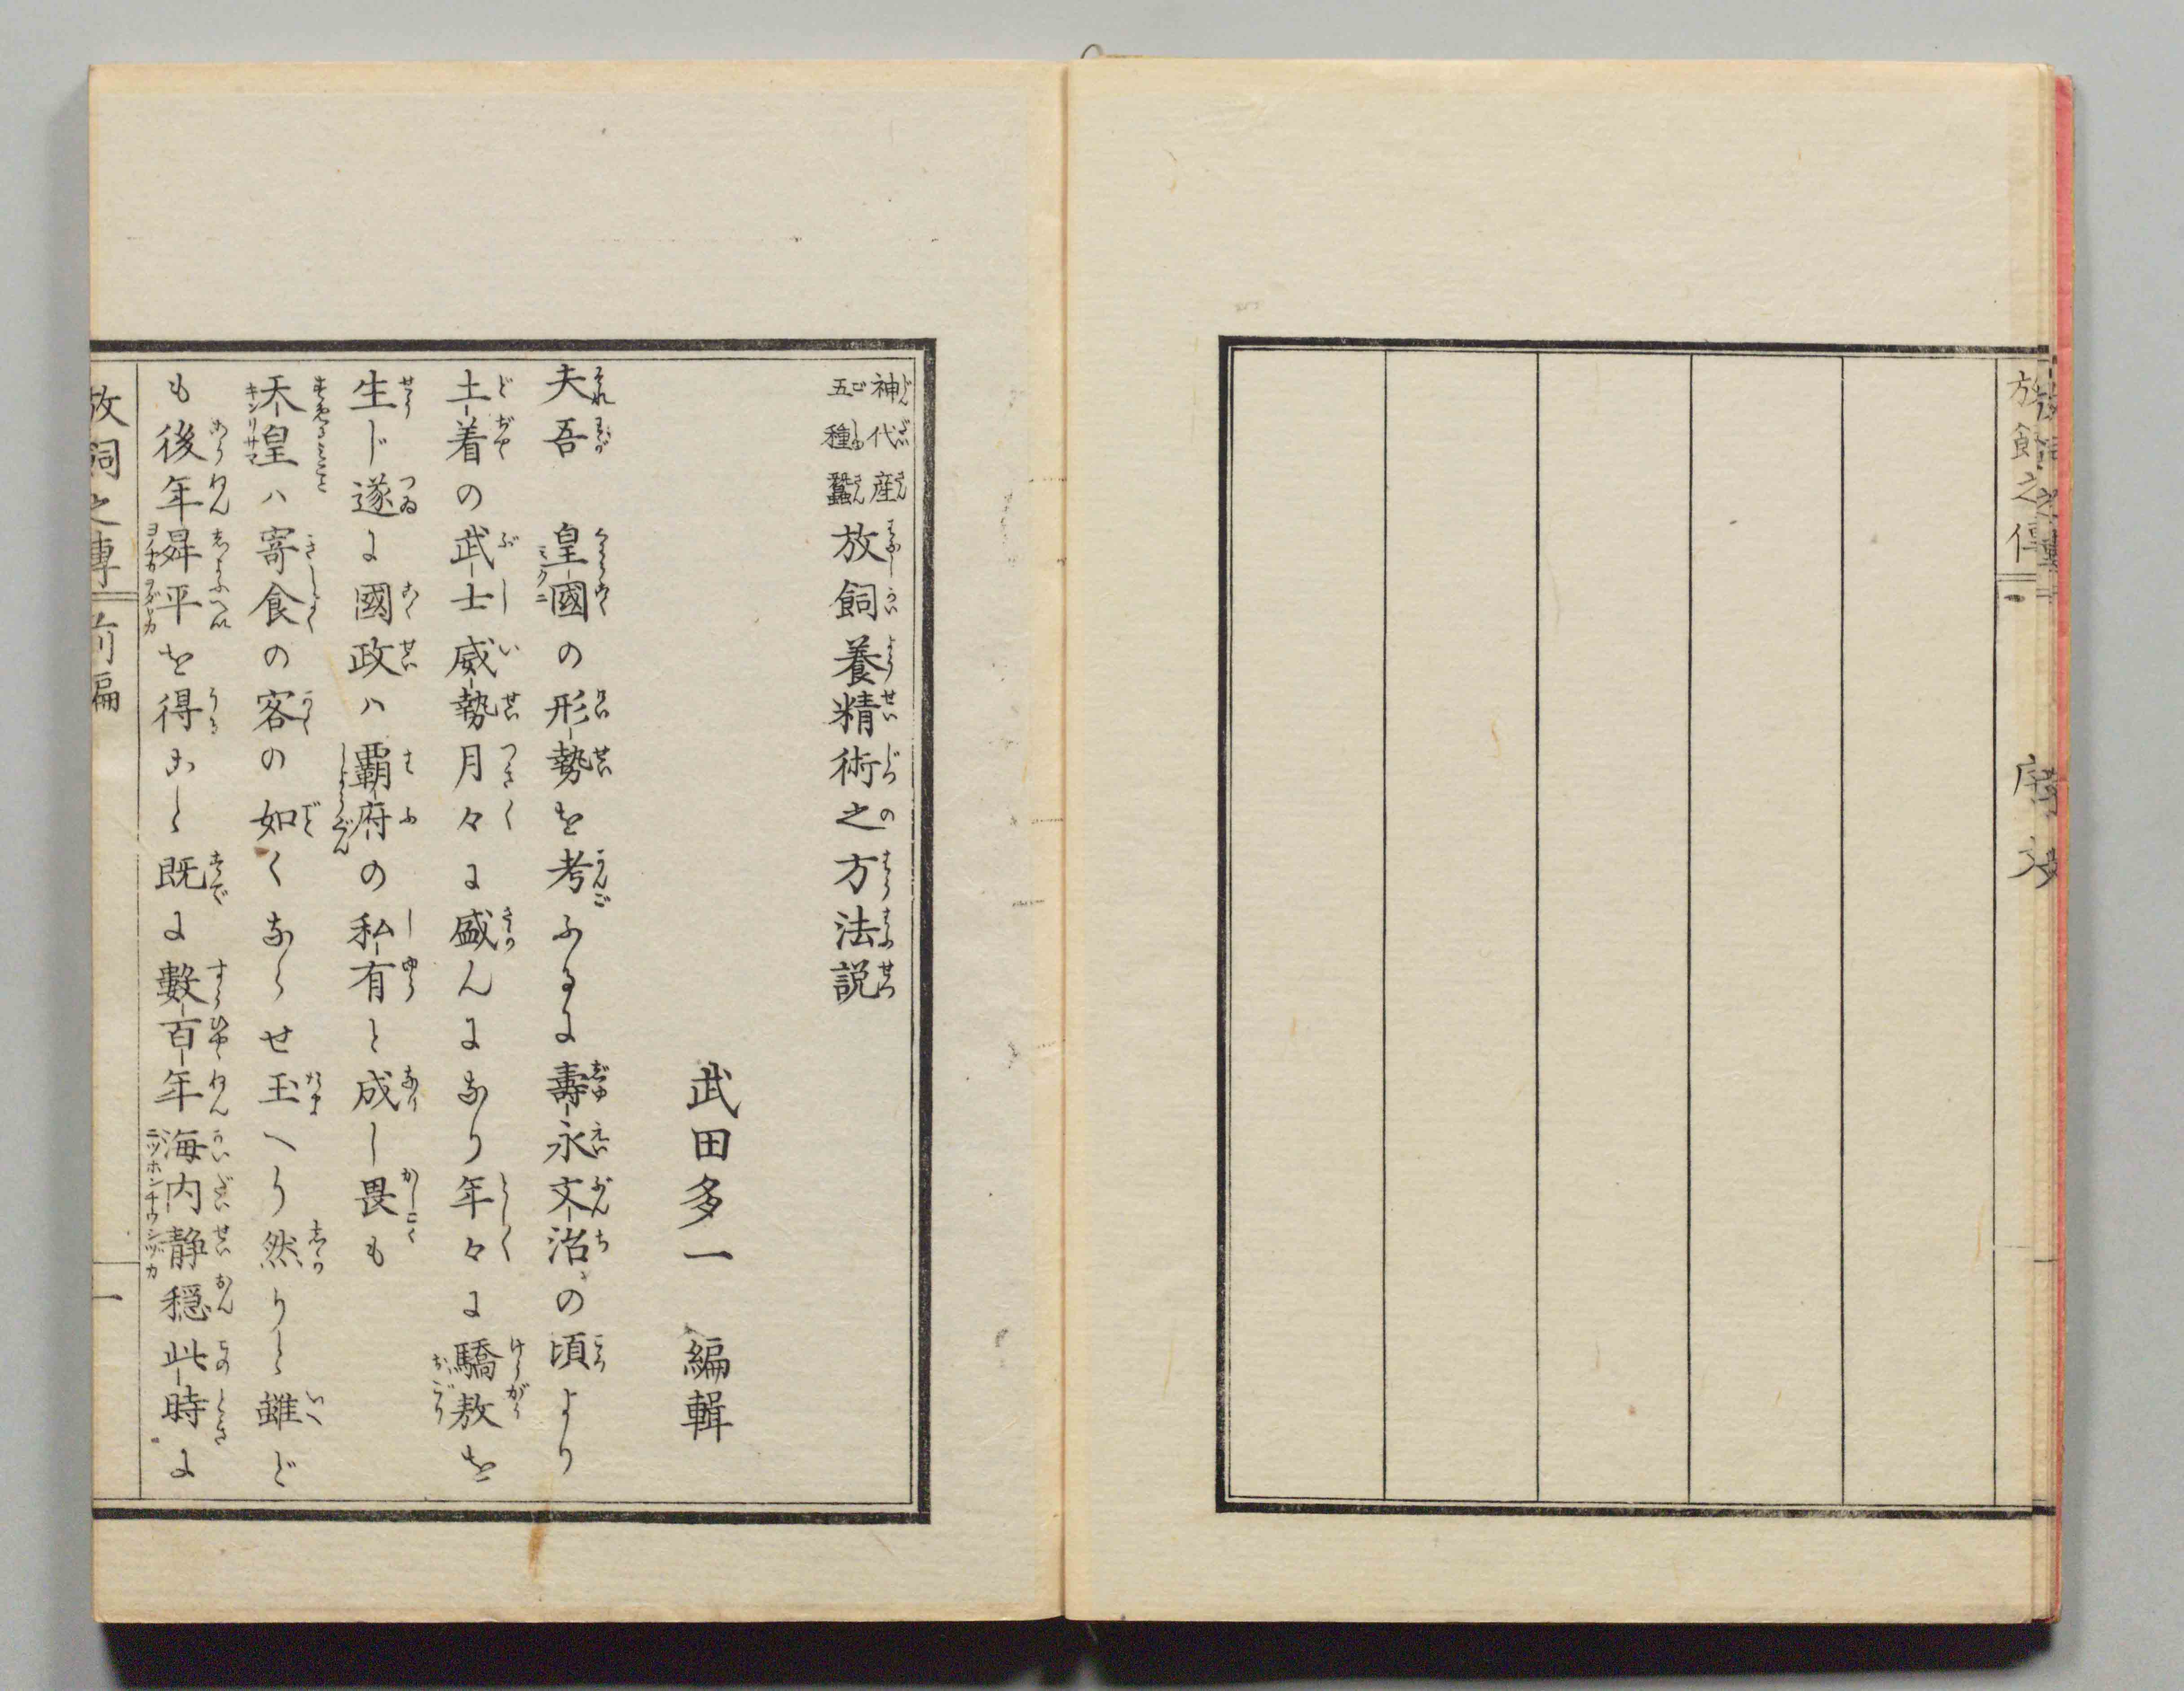 放飼之傳 一 序文
神代産
五種蠶
放飼養精術之方法説
武田多一 編輯
夫吾 皇國の形勢を考ふるに壽永文治の頃より
土着の武士威勢月々に盛んになり年々に驕敖を
生じ遂に國政ハ覇府の私有と成し畏も
天皇ハ寄食の客の如くならせ玉へり然りと雖ど
も後年昇平を得こと既に數百年海内静穏此時に
放飼之傳 前編 一